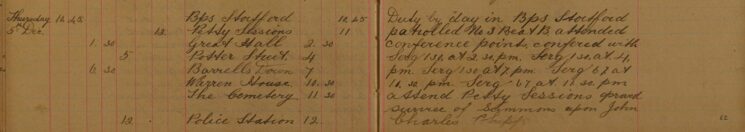 Thursday 10.45 Bps Stortford 10.45 Duty by day in Bps Stortford
5th Dec. 12. Petty Sessions 11 patrolled No 3 Beat & attended
1. 30 Great Hall 2. 30 conference points, confered with
5 Potter Street 4 Serg 131 at 2.30 pm. Serg 130 at 4
6. 30 Barretts Town 7 pm. Serg 130 at 7 pm. Serg 67 at
Warren House 10. 30 10.30 pm Serg 67 at 11.30 pm
The Cemetery 11 30 attend Petty Sessions proved
service of Summons upon John
12. Police Station 12. Charles